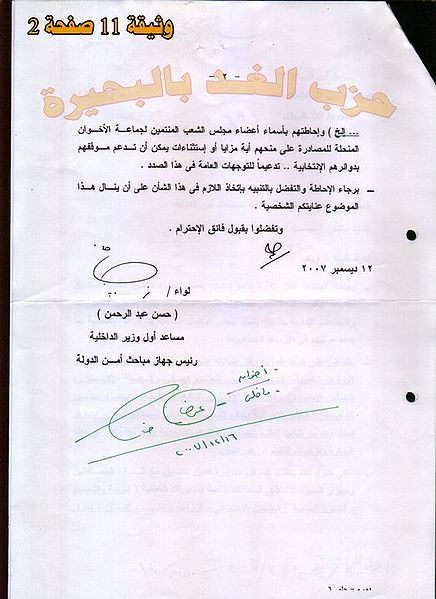 وثيقة 11 صفحة 2
- ٢ -
حزب الغد بالبحيرة
... إلخ ) وإحاطتهم بأسماء أعضاء مجلس الشعب المنتمين لجماعة الأخوان
المنحلة للمصادرة على منحهم أية مزايا أو إستثناءات يمكن أن تدعم موقفهم
بدوائرهم الإنتخابية .. تدعيماً للتوجهات العامة فى هذا الصدد .
– برجاء الإحاطة والتفضل بالتنبيه بإتخاذ اللازم فى هذا الشأن على أن ينال هذا
الموضوع عنايتكم الشخصية .
وتفضلوا بقبول فائق الإحترام .
١٢ ديسمبر ٢٠٠٧
لواء /
( حسن عبد الرحمن )
مساعد أول وزير الداخلية
رئيس جهاز مباحث أمن الدولة
عرض
٢٠٠٧/١٢/١٦